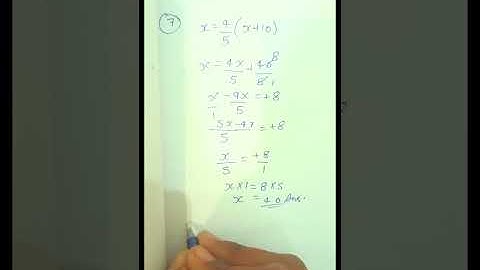 7 x = 4/5 (x+10)
x = 4x/5 + 40/5 8 1
x/1 - 4x/5 = +8
5x-4x/5 = +8
x/5 = +8/1
x×1 = 8×5
x = 40 Ans.